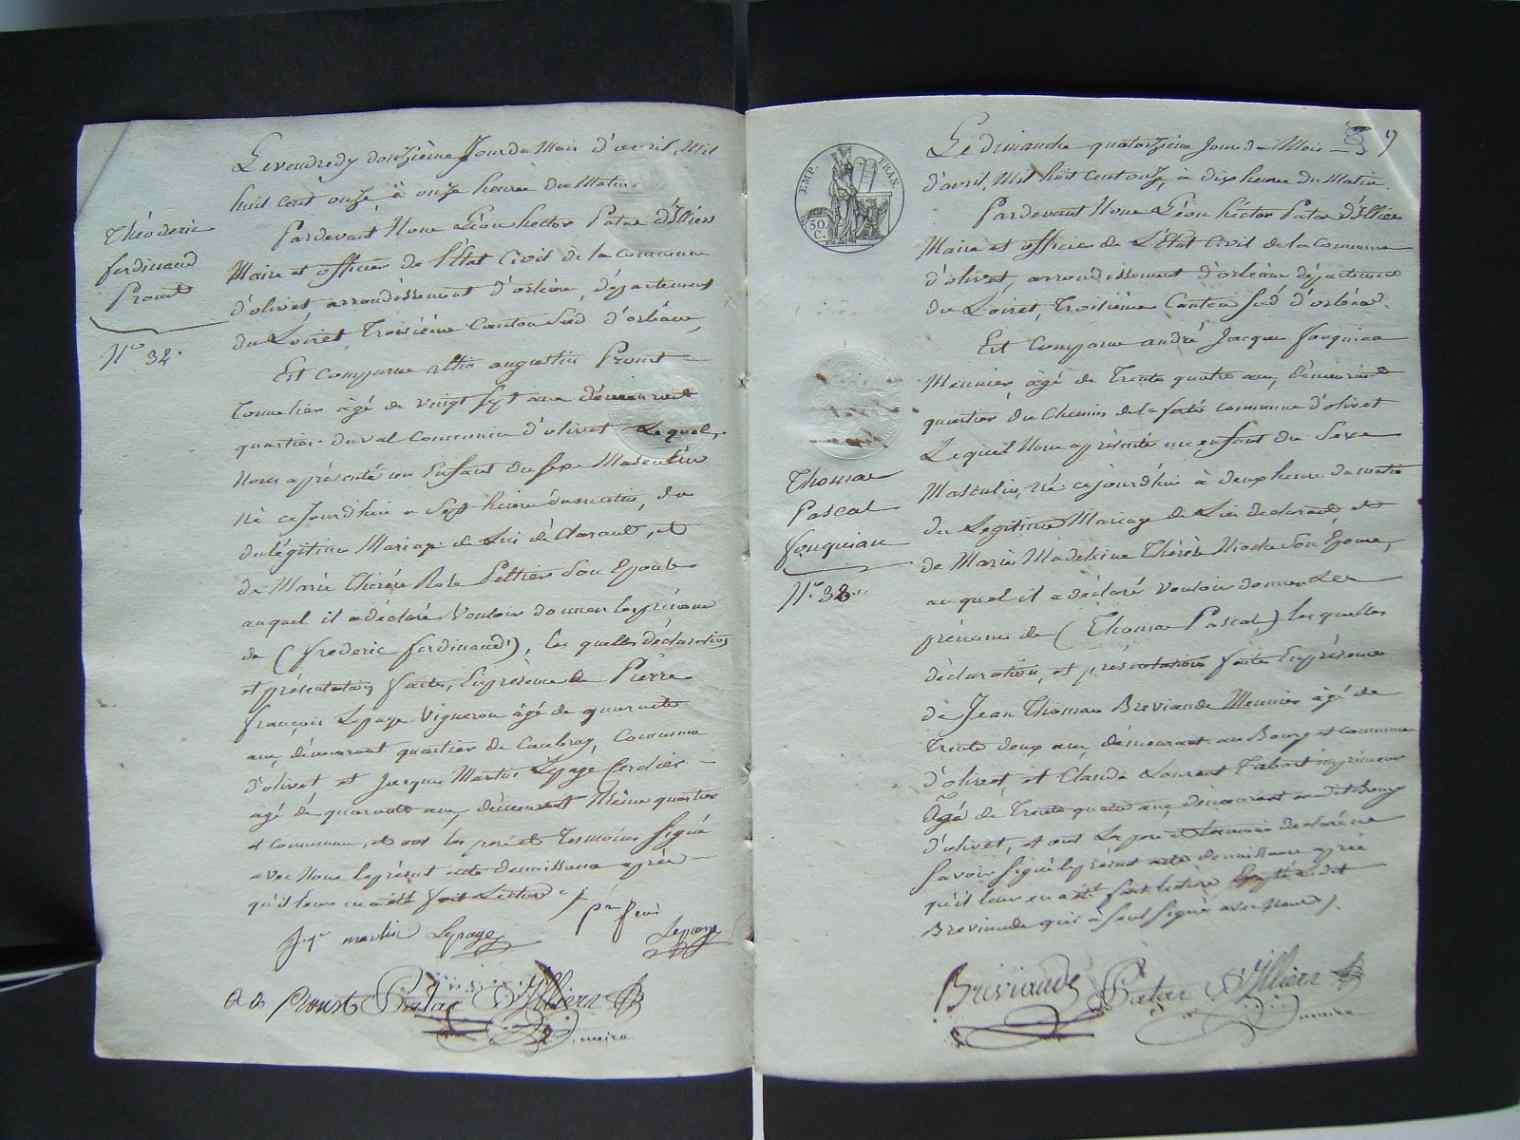 Le vendredy douzième Jour du Mois d'avril, Mil
huit cent onze, à onze heures du Matin.
Théoderic
ferdinand
Proust
N.º 32.
Pardevant Nous Léon hector Patas d'Illiers
Maire et officier de l'État Civil de la commune
d'olivet, arrondissement d'orléans, département
du Loiret, Troisième Canton Sud d'orléans,
Est Comparu augustin Proust
Tonnelier âgé de vingt sept ans demeurant
quartier du val Commune d'olivet Lequel,
Nous a présenté un Enfant du sexe Masculin
Né ce Jourd'hui a Sept heures du matin, du
du légitime Mariage de Lui déclarant, et
de Marie Thérèse Rose Peltier Son Epouse
auquel il a déclaré Vouloir donner les prénoms
de (frederic ferdinand), les quelles déclaration
et présentation faites, En présence de Pierre
françois Lepage Vigneron âgé de quarante
ans, démeurant quartier de Caubray, Commune
d'olivet et Jacques Martin Lepage Cordier
agé de quarante ans, démeurant Même quartier
et commune, et ont les pere et Temoins Signé
avec Nous le présent acte de naissance après
qu'il leur en a été fait Lecture
Jqe martin Lepage
pre fcois
Lepage
Proust Patas d'Illiers
maire
9
EMP. FRAN.
50 C.
Le dimanche quatorzième Jour du Mois
d'avril, Mil huit cent onze, à dix heures du Matin.
Pardevant Nous Léon hector Patas d'Illiers
Maire et officier de L'État Civil de la Commune
d'olivet, arrondissement d'orléans département
du Loiret, Troisième Canton Sud d'orléans.
Est Comparu andré Jacques fouquiau
Meunier, âgé de Trente quatre ans, démeurant
quartier du Chemin de la ferté commune d'olivet
Lequel Nous a présenté un enfant du Sexe
Masculin, Né ce jourd'hui à deux heures du matin
du Legitime Mariage de Lui declarant, et
de Marie Madeleine Thérèse Son Epouse,
au quel il a déclaré vouloir donner Les
prénoms de (Thomas Pascal) les quelles
déclaration, et présentation faites En présence
de Jean Thomas Breviande Meunier âgé de
Trente deux ans, démeurant au Bourg et commune
d'olivet, et Claude Laurent Tabart
Agé de Trente quatre ans, démeurant au dit Bourg
d'olivet, et ont Le pere et temoins declaré ne
Savoir Signé le présent acte de naissance après
qu'il leur en a été fait lecture Excepté le dit
Breviande qui a Seul Signé avec Nous.
Thomas
Pascal
fouquiau
N.º 33.
Breviande Patas d'Illiers
maire